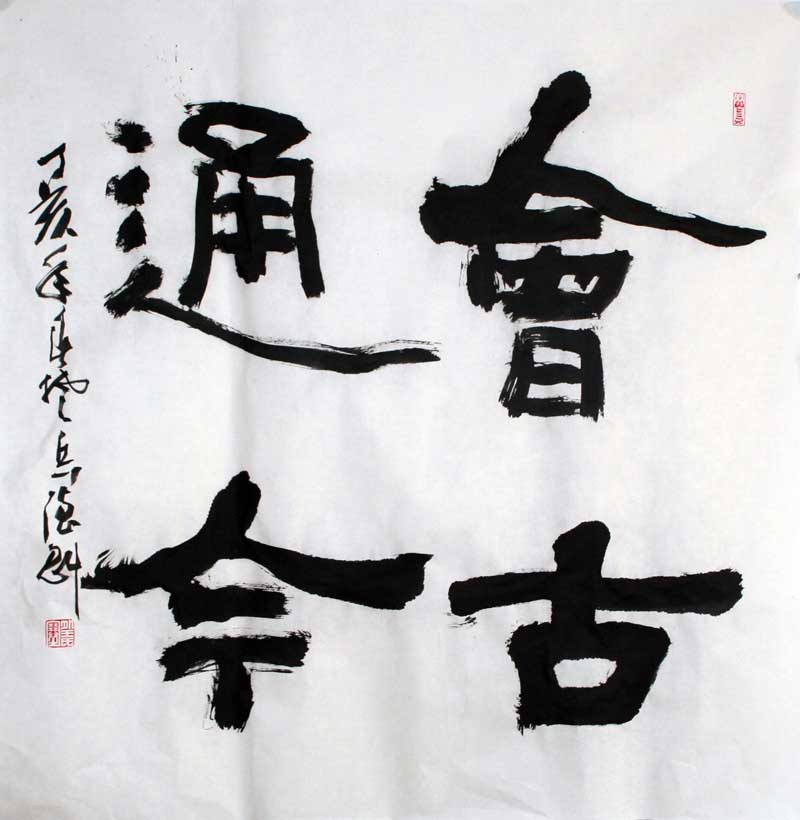 會古
通今
丁亥年春